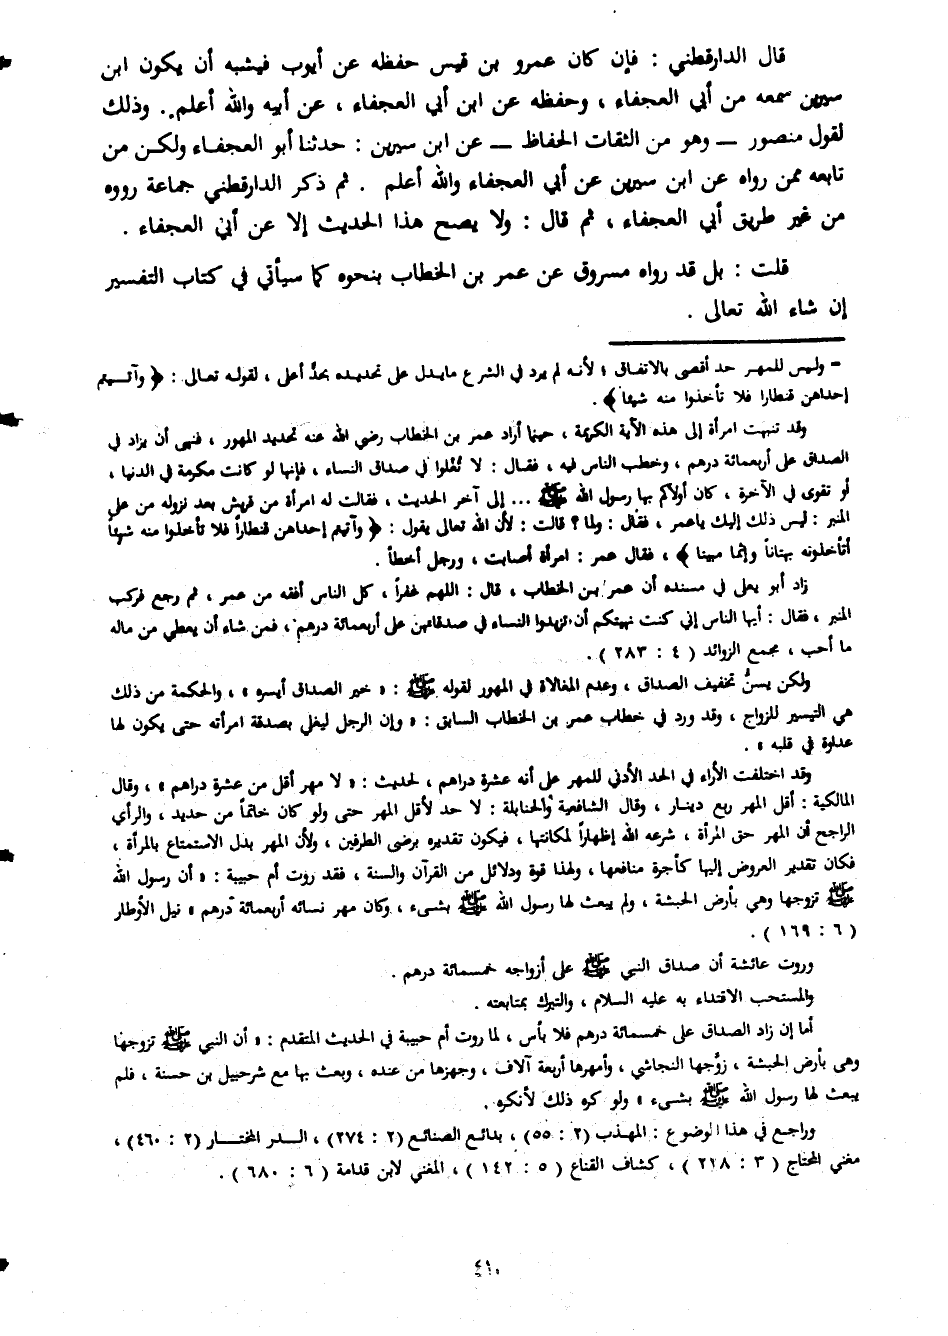 قال الدارقطني : فإن كان عمرو بن قيس حفظه عن أيوب فيشبه أن يكون ابن
سيرين سمعه من أبي العجفاء ، وحفظه عن ابن أبي العجفاء ، عن أبيه والله أعلم .. وذلك
لقول منصور ــ وهو من الثقات الحفاظ ــ عن ابن سيرين : حدثنا أبو العجفاء ولكن من
تابعه ممن رواه عن ابن سيرين عن أبي العجفاء والله أعلم . ثم ذكر الدارقطني جماعة رووه
من غير طريق أبي العجفاء ، ثم قال : ولا يصح هذا الحديث إلا عن أبي العجفاء .
قلت : بل قد رواه مسروق عن عمر بن الخطاب بنحوه كما سيأتي في كتاب التفسير
إن شاء الله تعالى .
= وليس للمهر حد أقصى بالاتفاق ؛ لأنه لم يرد في الشرع مايدل على تحديده بحدٍّ أعلى ، لقوله تعالى : ﴿ وآتيتم
إحداهن قنطارا فلا تأخذوا منه شيئاً ﴾ .
وقد تنبهت امرأة إلى هذه الآية الكريمة ، حينما أراد عمر بن الخطاب رضي الله عنه تحديد المهور ، فنهى أن يزاد في
الصداق على أربعمائة درهم ، وخطب الناس فيه ، فقال : لا تُغلوا في صداق النساء ، فإنها لو كانت مكرمة في الدنيا ،
أو تقوى في الآخرة ، كان أولاكم بها رسول الله ﷺ ... إلى آخر الحديث ، فقالت له امرأة من قريش بعد نزوله من على
المنبر : ليس ذلك إليك ياعمر ، فقال : ولما ؟ قالت : لأن الله تعالى يقول : ﴿ وآتيتم إحداهن قنطاراً فلا تأخلوا منه شيئاً
أتأخلونه بهتاناً وإثما مبينا ﴾ ، فقال عمر : امرأة أصابت ، ورجل أخطأ .
زاد أبو يعلى في مسنده أن عمر بن الخطاب ، قال : اللهم غفراً ، كل الناس أفقه من عمر ، ثم رجع فركب
المنبر ، فقال : أيها الناس إني كنت نهيتكم أن تزيدوا النساء في صدقاتهن على أربعمائة درهم ، فمن شاء أن يعطي من ماله
ما أحب ، مجمع الزوائد ( ٤ : ٢٨٣ ) .
ولكن يسنُّ تخفيف الصداق ، وعدم المغالاة في المهور لقوله ﷺ : « خير الصداق أيسره » ، والحكمة من ذلك
هي التيسير للزواج ، وقد ورد في خطاب عمر بن الخطاب السابق : « وإن الرجل ليغلي بصدقة امرأته حتى يكون لها
عداوة في قلبه » .
وقد اختلفت الأراء في الحد الأدني للمهر على أنه عشرة دراهم ، لحديث : « لا مهر أقل من عشرة دراهم » ، وقال
المالكية : أقل المهر ربع دينار ، وقال الشافعية والحنابلة : لا حد لأقل المهر حتى ولو كان خاتماً من حديد ، والرأي
الراجح أن المهر حق المرأة ، شرعه الله إظهاراً لمكانتها ، فيكون تقديره برضى الطرفين ، ولأن المهر بدل الاستمتاع بالمرأة ،
فكان تقدير العروض إليها كأجرة منافعها ، ولهذا قوة ودلائل من القرآن والسنة ، فقد روت أم حبيبة : « أن رسول الله
ﷺ تزوجها وهي بأرض الحبشة ، ولم يبعث لها رسول الله ﷺ بشيء ، وكان مهر نسائه أربعمائة درهم » نيل الأوطار
( ٦ : ١٦٩ ) .
وروت عائشة أن صداق النبي ﷺ على أزواجه خمسمائة درهم .
والمستحب الاقتداء به عليه السلام ، والتبرك بمتابعته .
أما إن زاد الصداق على خمسمائة درهم فلا بأس ، لما روت أم حبيبة في الحديث المتقدم : « أن النبي ﷺ تزوجها
وهي بأرض الحبشة ، زوَّجها النجاشي ، وأمهرها أربعة آلاف ، وجهزها من عنده ، وبعث بها مع شرحبيل بن حسنة ، فلم
يبعث لها رسول الله ﷺ بشيء » ولو كره ذلك لأنكره .
وراجع في هذا الموضوع : المهذب (٢ : ٥٥) ، بدائع الصنائع (٢ : ٢٧٤) ، الدر المختار (٢ : ٤٦٠) ،
مغني المحتاج ( ٣ : ٢١٨ ) ، كشاف القناع ( ٥ : ١٤٢ ) ، المغني لابن قدامة ( ٦ : ٦٨٠ ) .
٤١٠